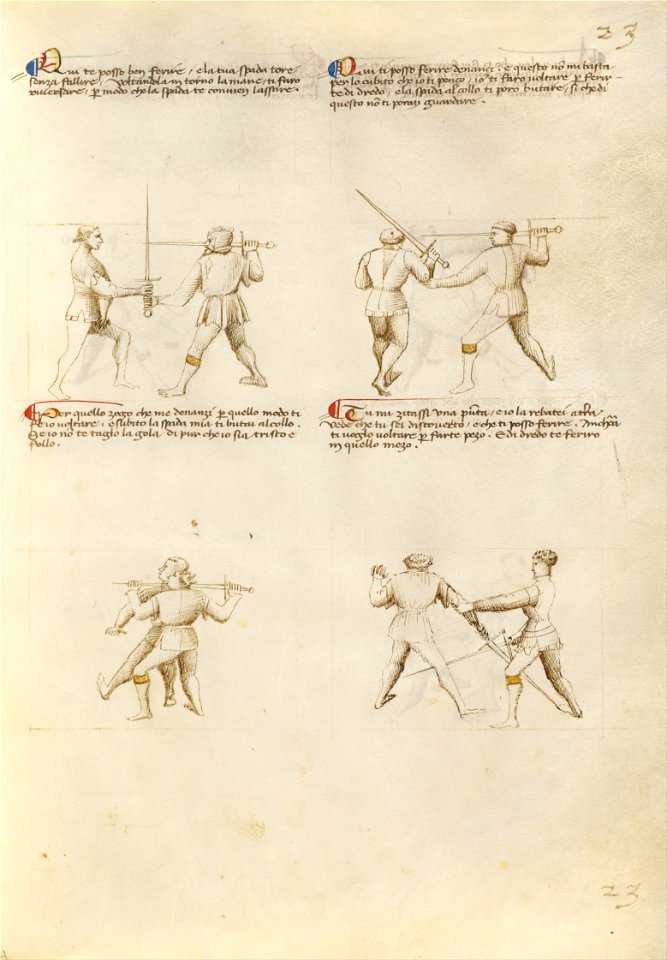 23
Qui te posso ben ferire, e la tua spada tore
senza fallire, Voltandola in torno la mane, ti faro
riversare, p modo che la spada te convien lassare.
Qui ti posso ferire denançi, e questo nō mi basta
per lo cubito che io ti penço, io ti faro voltare p ferir
te di dredo, e la spada al collo ti poro butare, si che di
questo nō ti porai guardare.
Per quello zogo che me denanzi p quello modo ti
feci voltare, e subito la spada mia ti butai al collo.
Se io nō te taglo la gola di pur che io sia tristo e
follo.
Tu mi zitassi una pūta, e io la rebatei a trā
vede che tu sei discoverto, e che ti posso ferire. Anchᵃ
ti voglo voltare p farte pezo. E di dredo te feriro
in quello mezo.
23